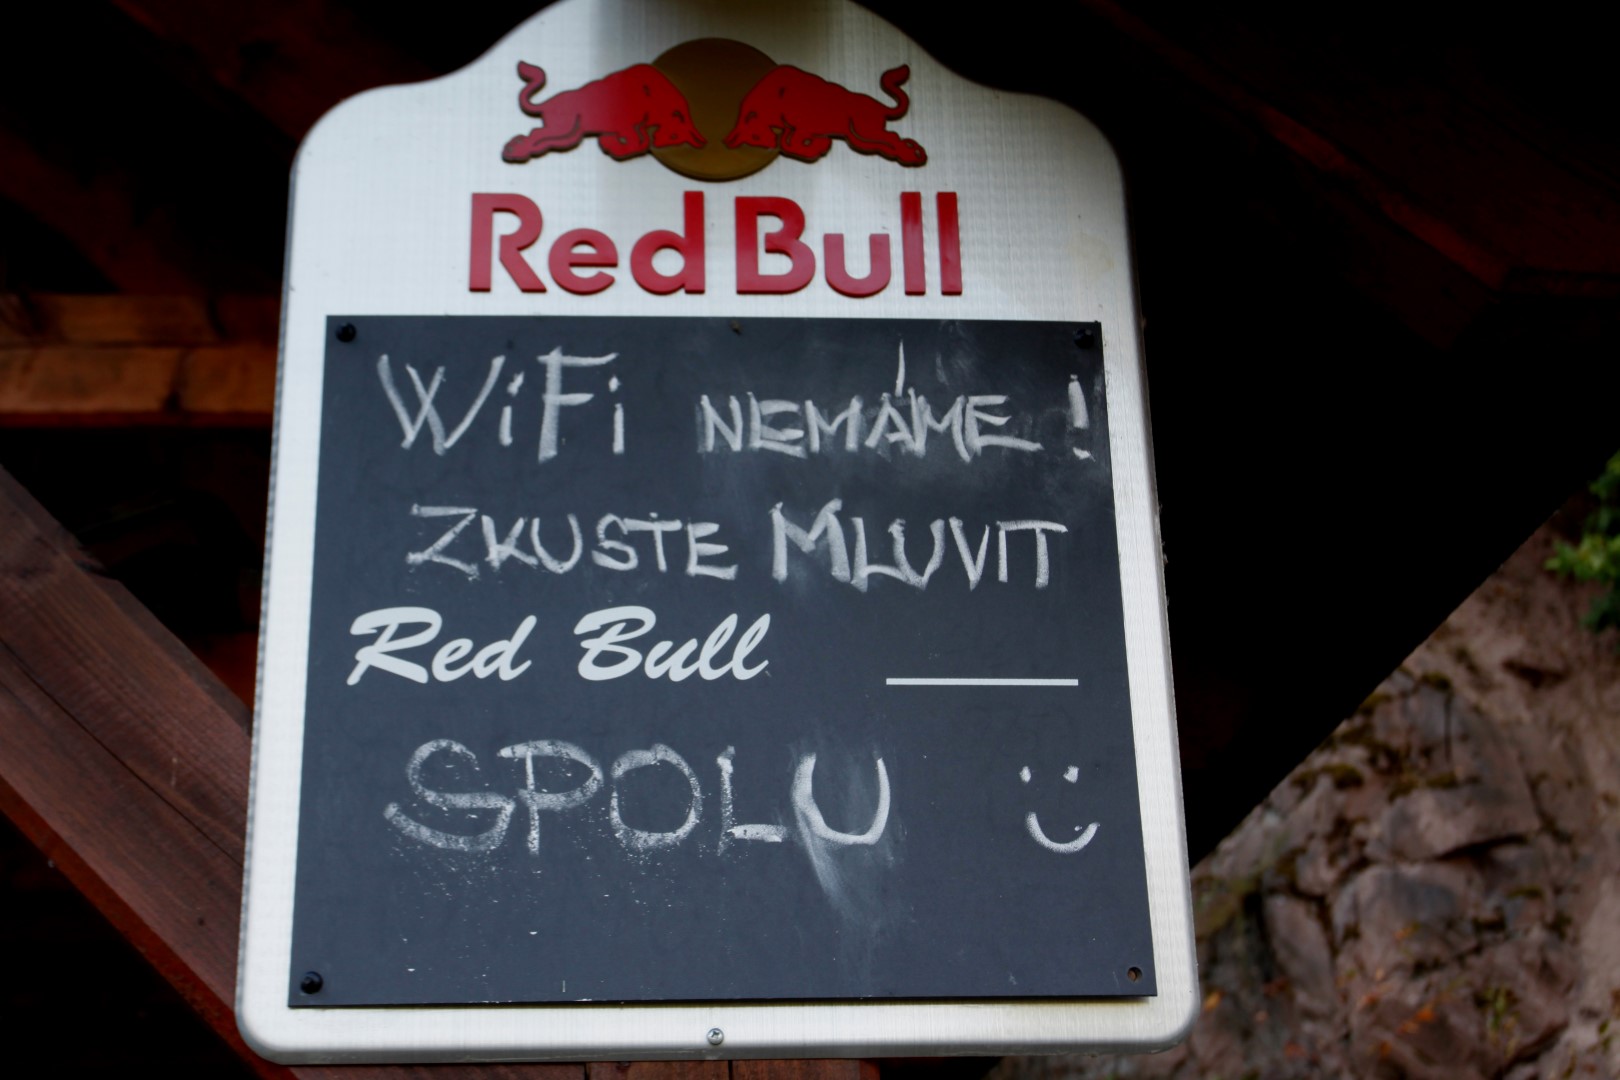 Red Bull
WiFi NEMÁME!
ZKUSTE MLUVIT
Red Bull
SPOLU